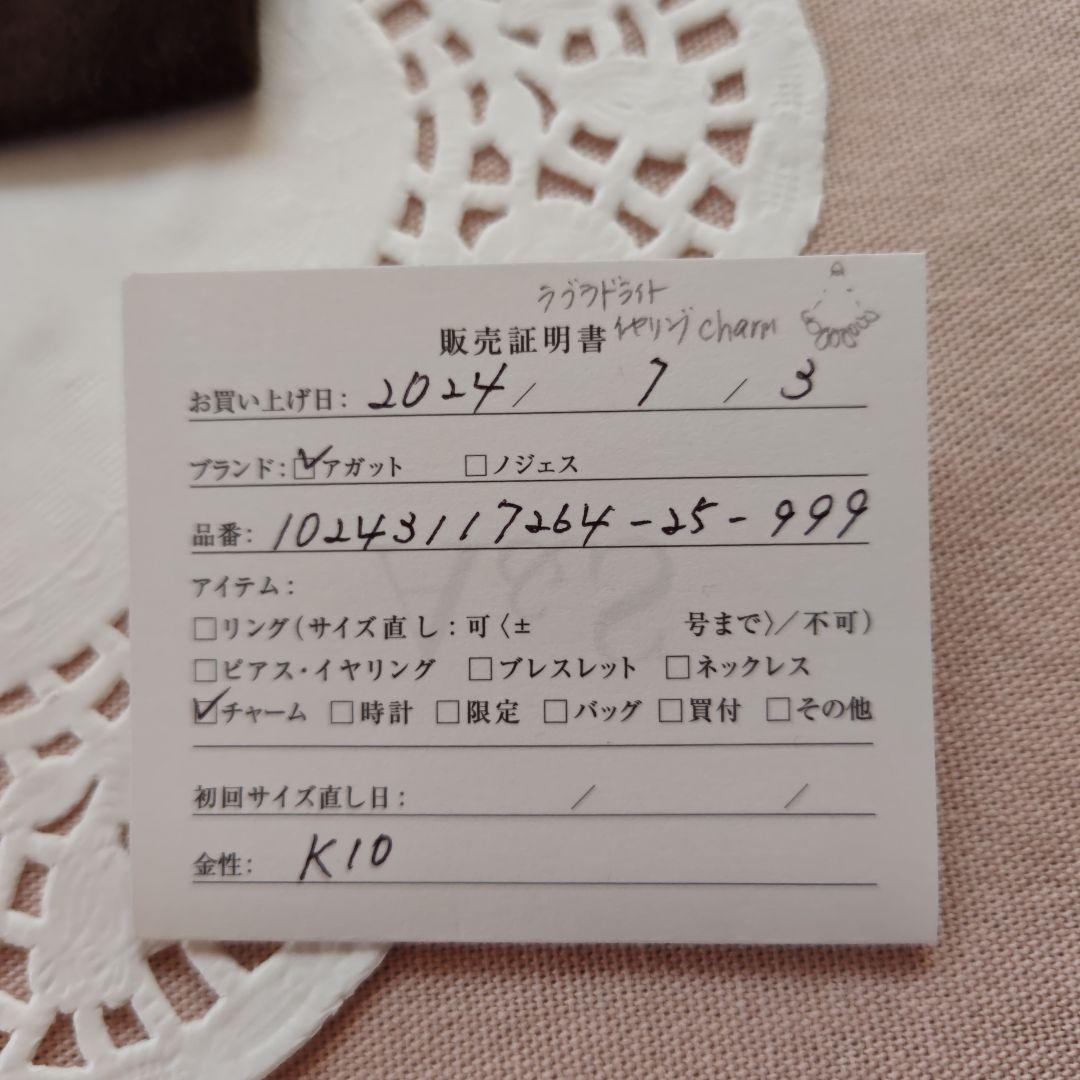 ラブラドライト
イヤリング charm
販売証明書
お買い上げ日: 2024 / 7 / 3
ブランド: ☑アガット □ノジェス
品番: 10243117264-25-999
アイテム:
□リング(サイズ直し:可〈± 号まで〉/不可)
□ピアス・イヤリング □ブレスレット □ネックレス
☑チャーム □時計 □限定 □バッグ □買付 □その他
初回サイズ直し日: / /
金性: K10